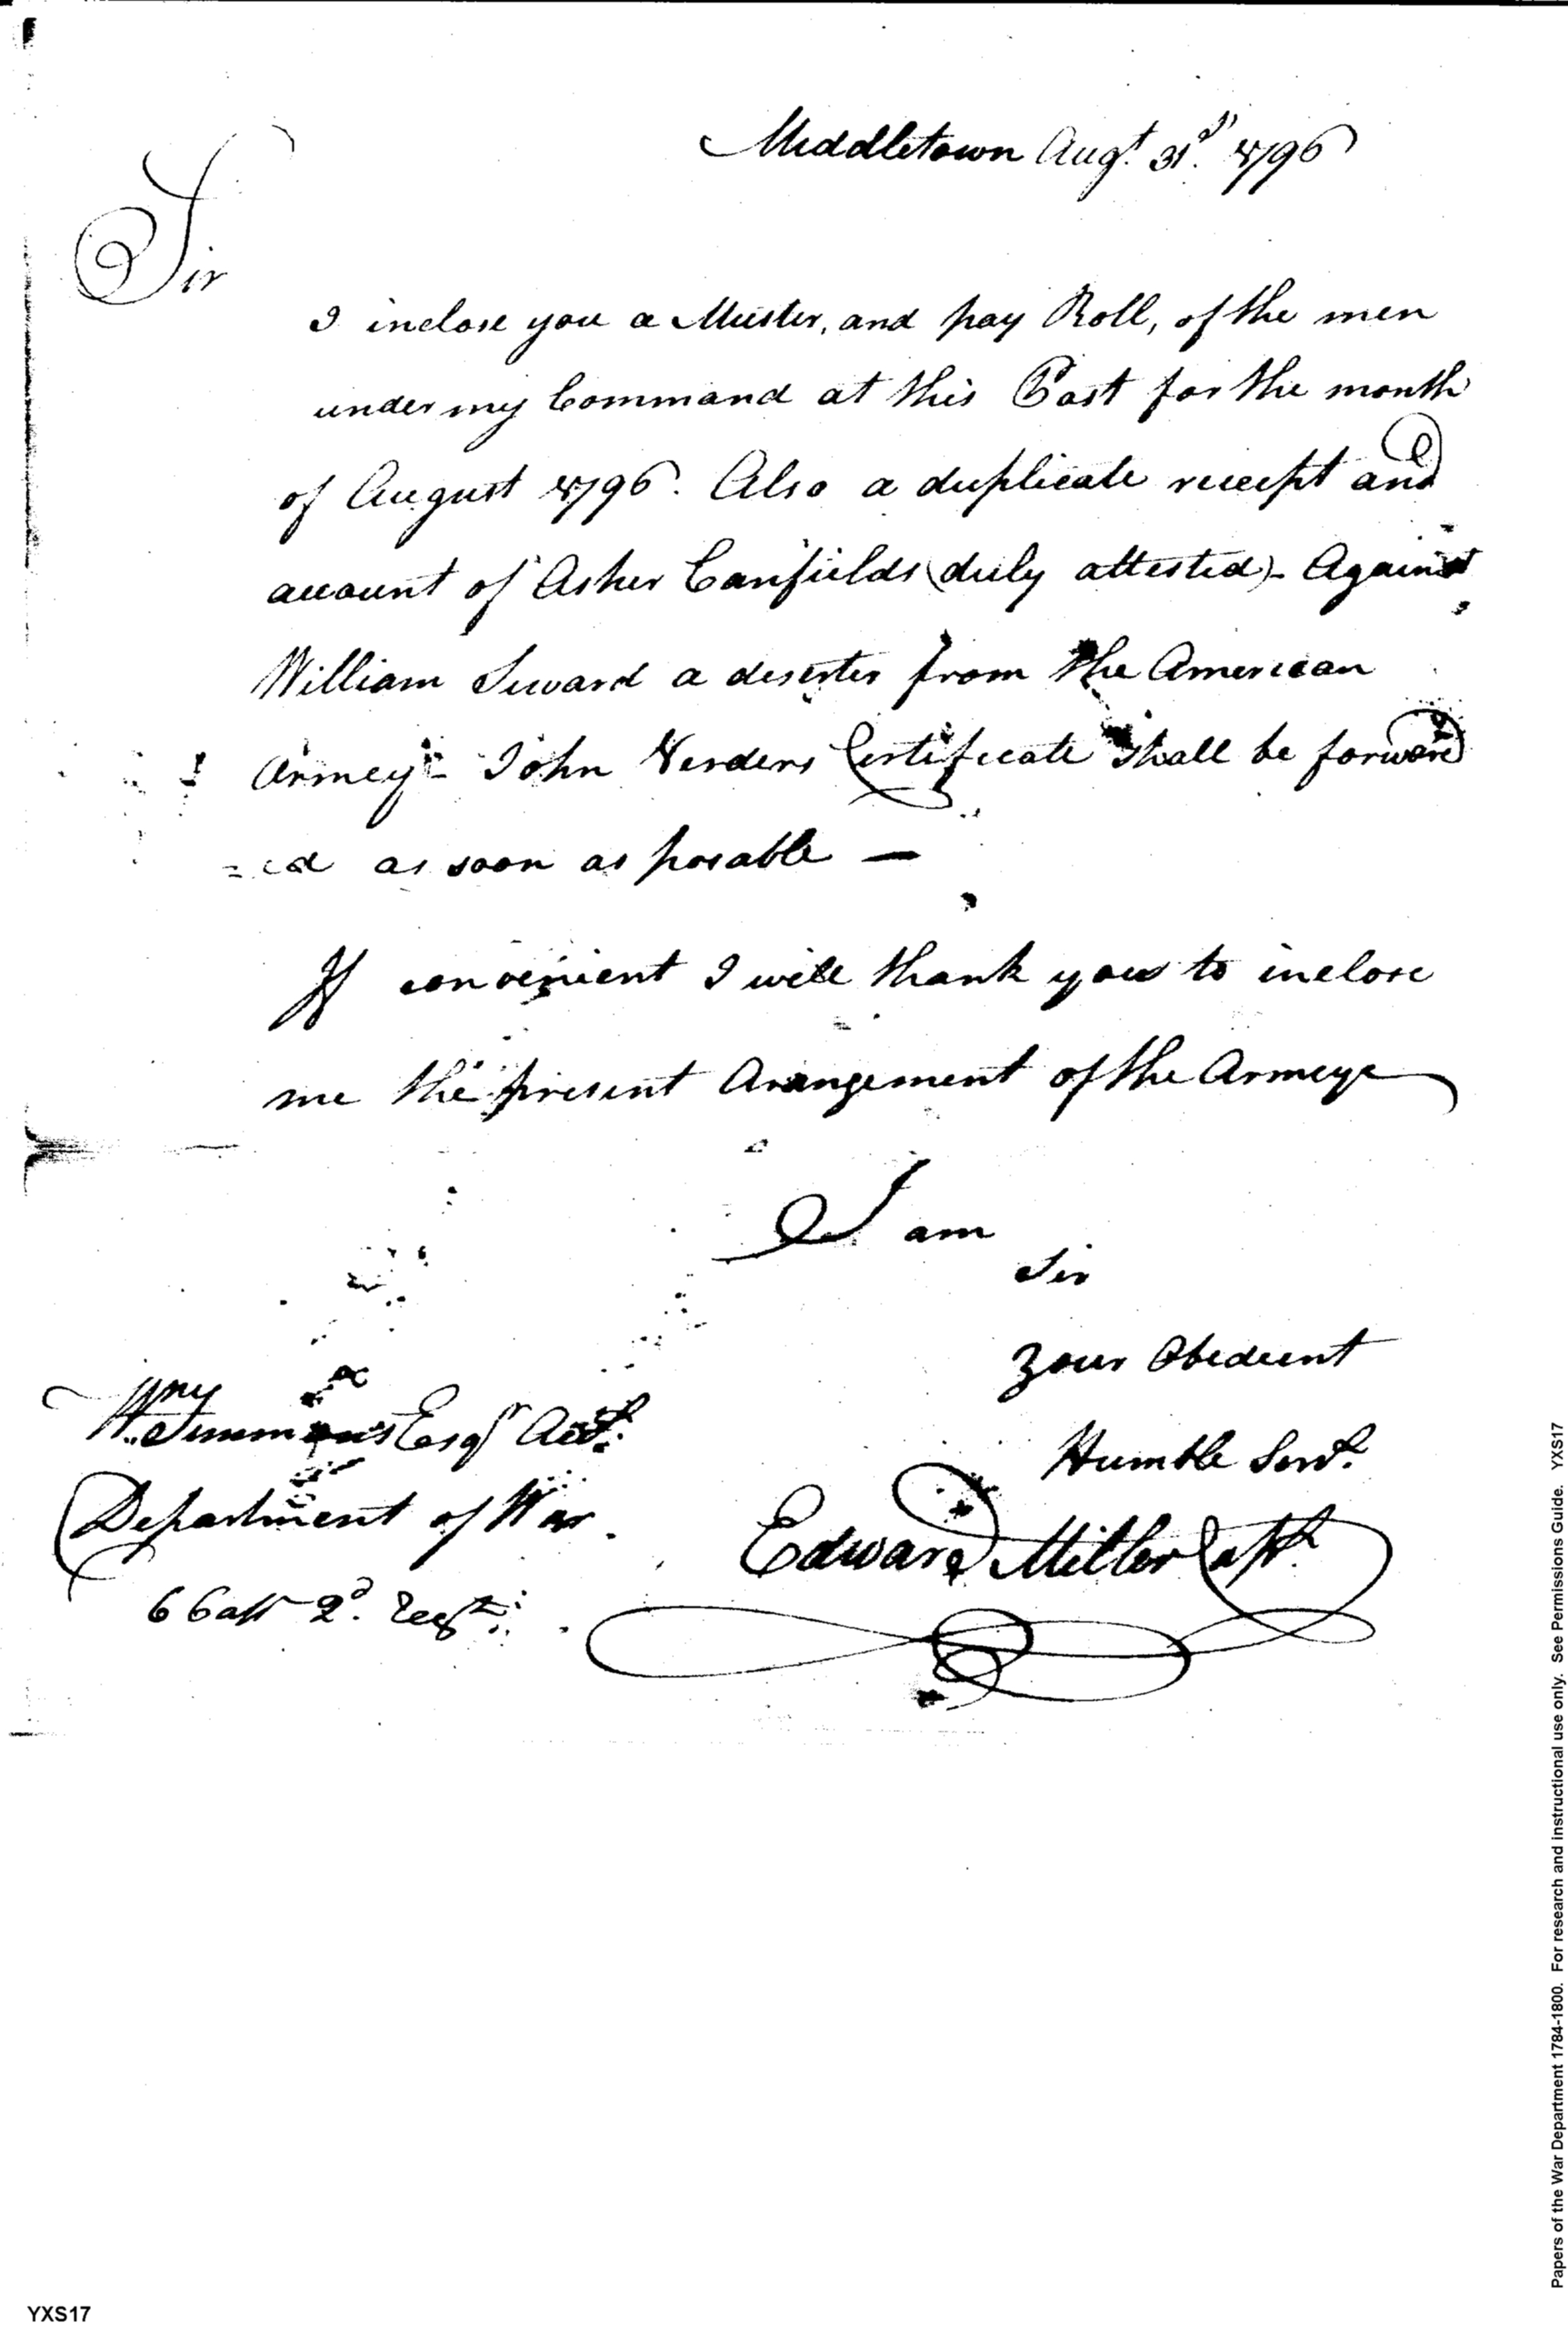 Middletown Augt. 31st. 1796
Sir
I inclose you a Muster, and pay Roll, of the men
under my Command at this Post for the month
of August 1796. Also a duplicate receipt and
account of Asher Canfields (duly attested) - Against
William Seward a deserter from the American
Armey - John Verders Certificate Shall be forward
=ed as soon as posable —
If convenient I will thank you to inclose
me the present Arangement of the Armeye
I am
Sir
Your Obedient
Humble Servt.
Wm. Simmons Esqr Acct.
Department of War.
Edward Miller Capt.
2d. Regt.
Papers of the War Department 1784-1800. For research and instructional use only. See Permissions Guide. YXS17
YXS17